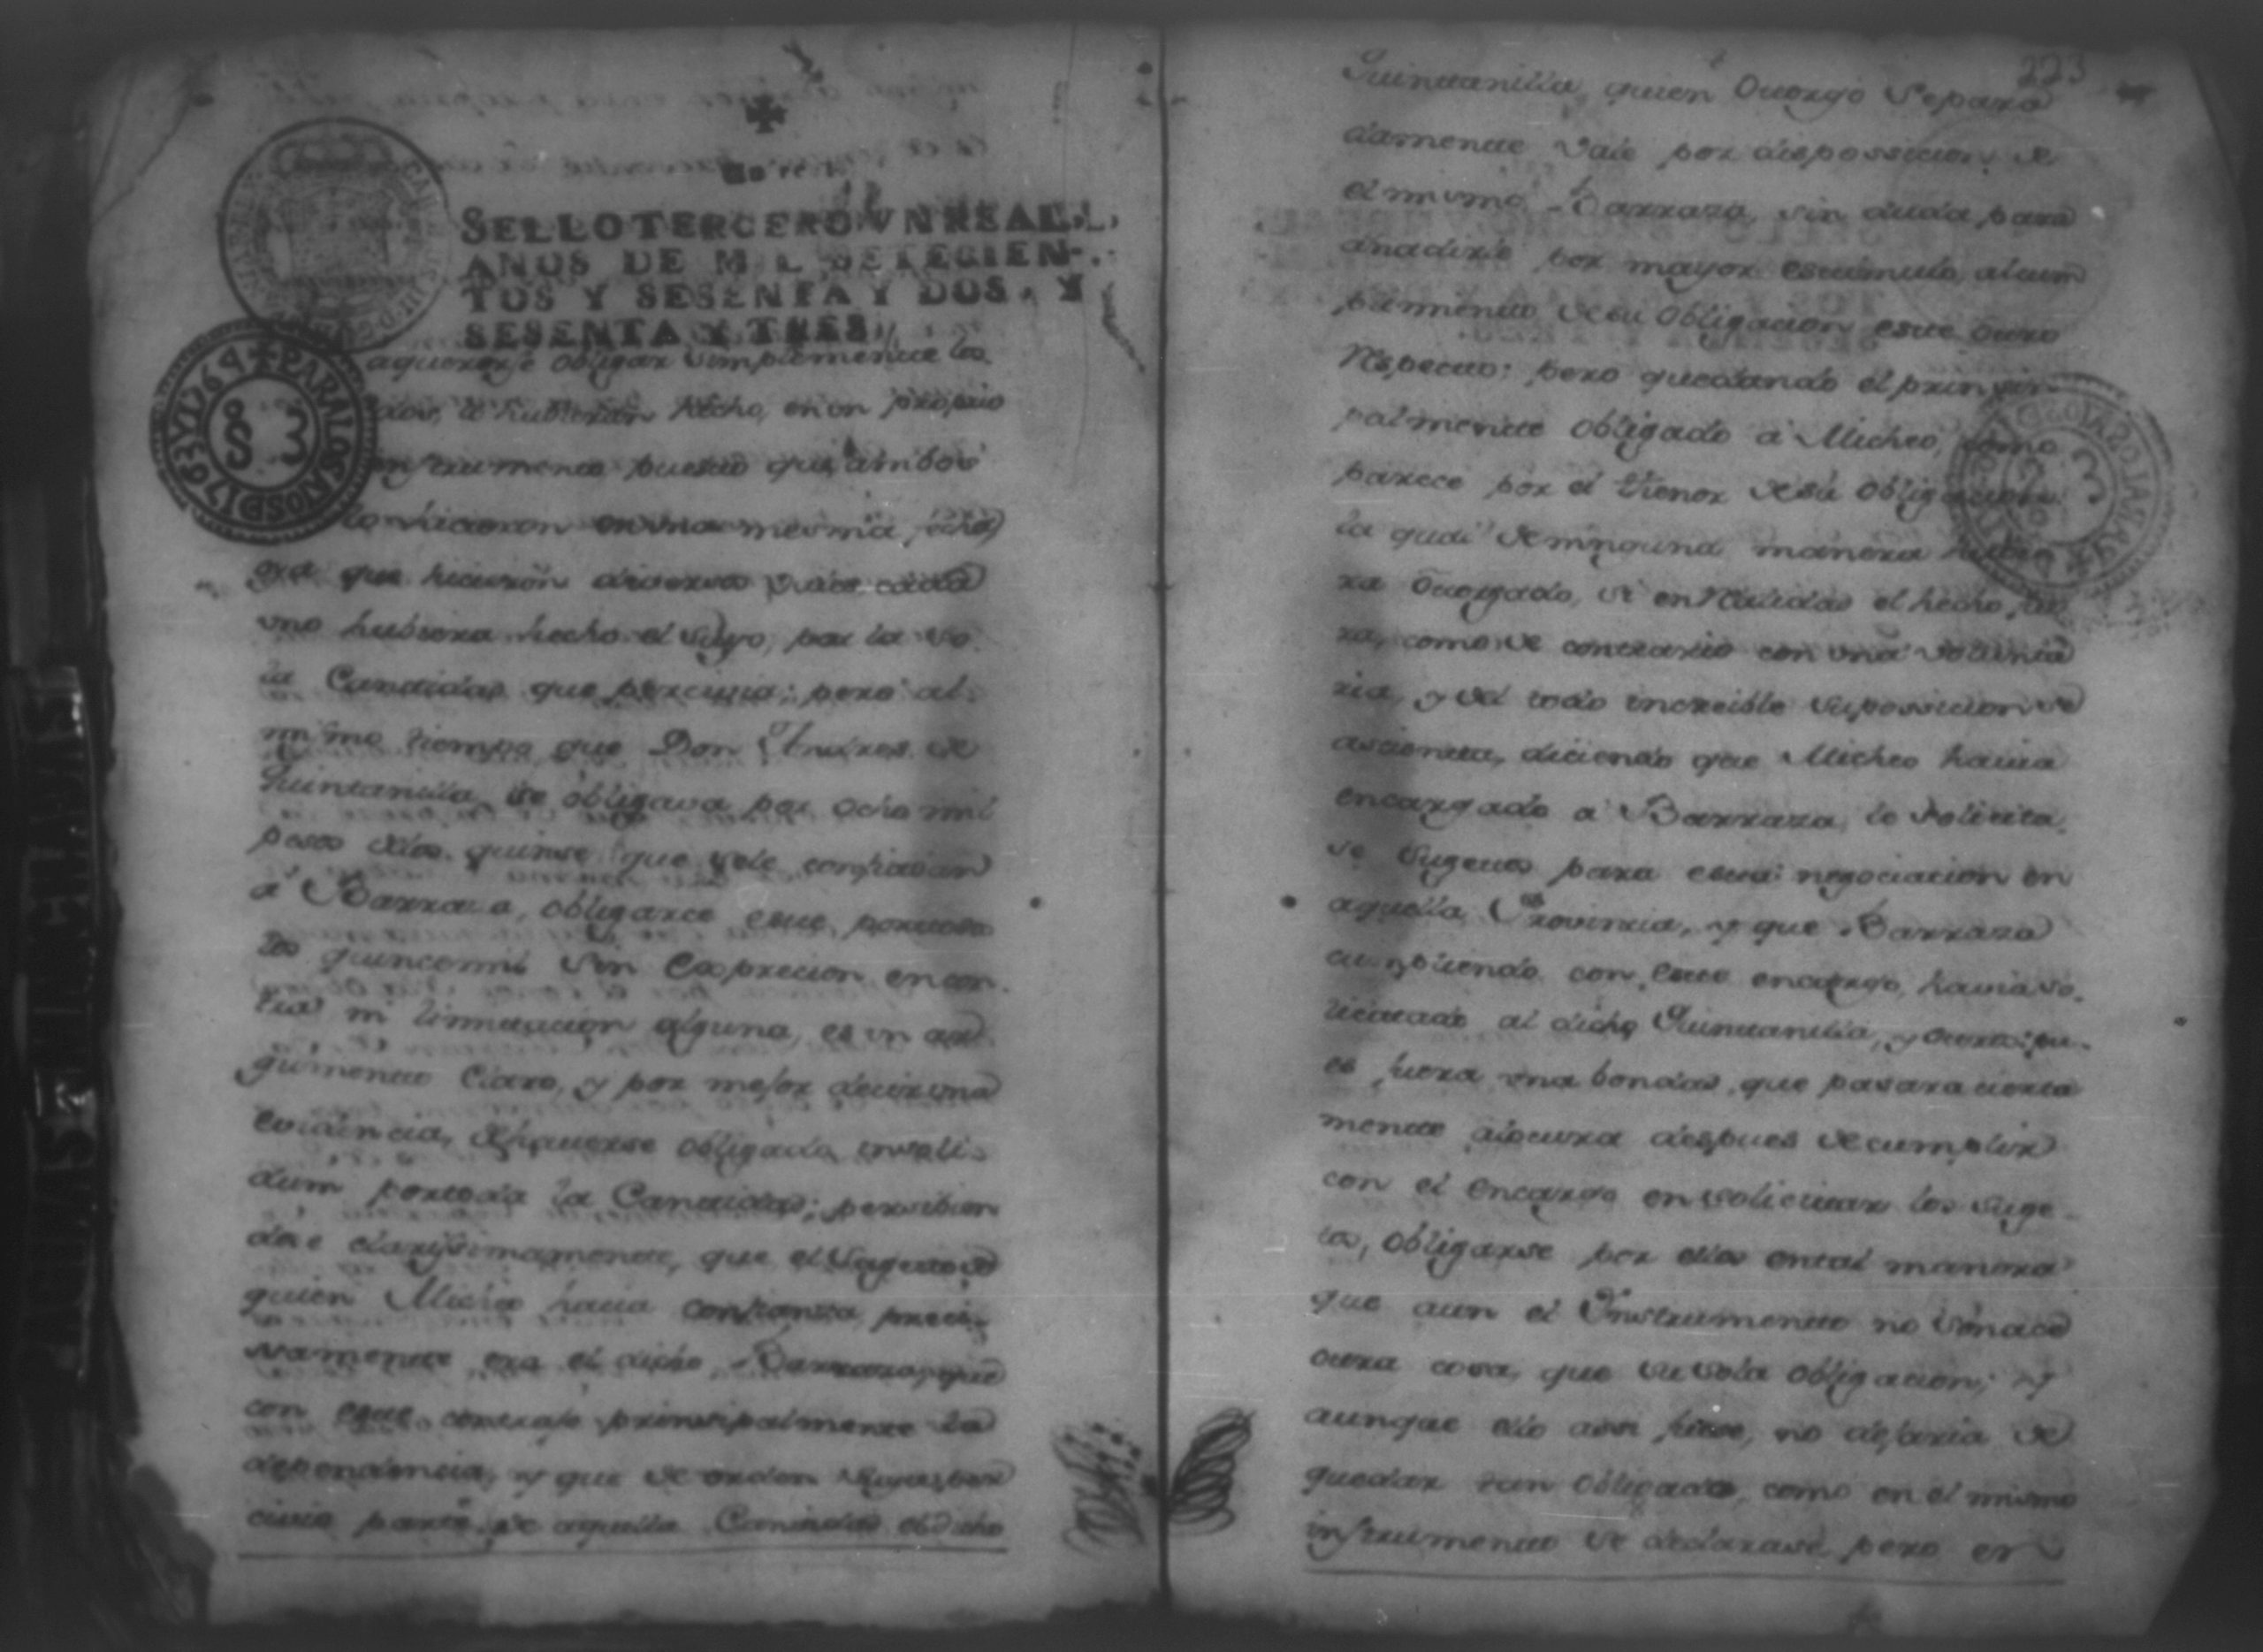 SELLO TERCERO, VN REAL,
AÑOS DE MIL SETECIEN-
TOS Y SESENTA Y DOS, Y
SESENTA Y TRES.
PARA LOS ANOS D 1763 Y 1764
aquererse obligar simplemente los
dos, lo hubieran hecho, en un proprio
instrumento puesto que ambos
lo hicieron en una mesma fecha
ya que hicieron diversos vales cada
uno hubiera hecho el suyo, por la so
la Cantidad que percivia; pero al
mismo tiempo que Don Andres de
Quintanilla se obligava por ocho mil
pesos delos quinse que sele confiavan
a Barraza, obligarce este por todos
los quincemil sin Exprecion en con
tra ni limitacion alguna, es un ar
gumento Claro, y por mejor decir una
evidencia, de haverse obligado insoli
dum portoda la Cantidad; percibien
dose clarissimamente, que el Sugeto de
quien Micheo hacia confianza preci
samente era el dicho Barraza, que
con este contrajo prinsipalmente la
dependencia, y que de orden
civio parte de aquella Cantidad el dicho
223
Quintanilla, quien Otorgó Separa
damente Vale por dispossicion de
el mismo Barraza, sin duda para
añadirle por mayor estimulo al cum
plimiento desu Obligacion este otro
Respecto: pero quedando el prinsi
palmente obligado á Micheo, como
parece por el tienor desu Obligacion
la qual deninguna manera hubie
ra Otorgado, si en Realidad el hecho fue
ra, como de contrario con una volunta
ria, y del todo increible suposicion se
ascienta, diciendo que Micheo havia
encargado a Barraza, le solicita
se Sugetos para esta negociacion en
aquella Provincia, y que Barraza
cumpliendo con este encargo, havia so
licitado al dicho Quintanilla, y otros: pu
es fuera una bondad, que pasara cierta
mente alocura despues decumplir
con el encargo en solicitar los suge
tos, obligarse por ellos ental manera
que aun el Instrumento no sonace
otra cosa, que su sola obligacion; y
aunque ello assi fuese, no dejaria de
quedar tan obligado, como en el mismo
instrumento se declarase pero en